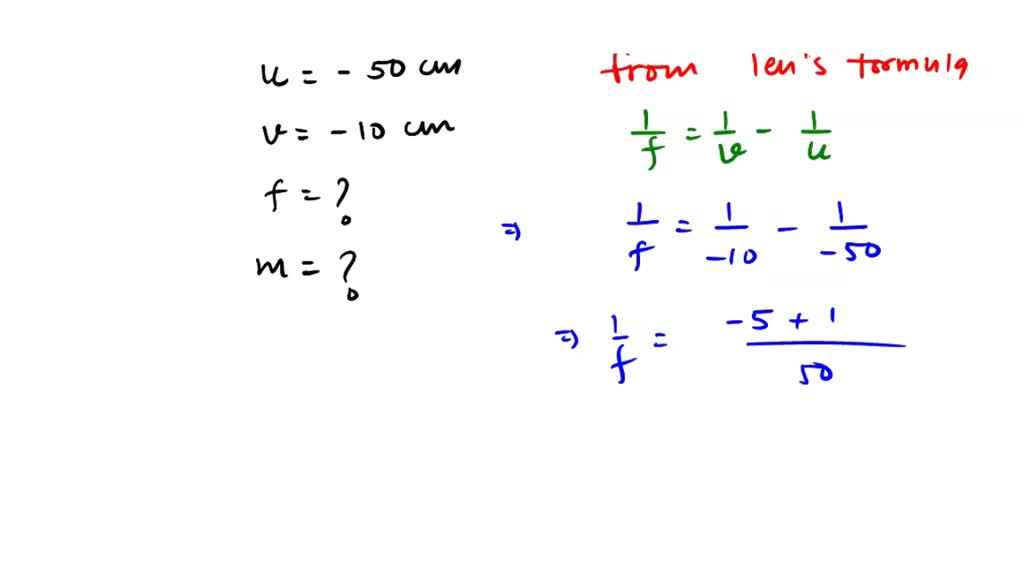 u = - 50 cm
v = - 10 cm
f = ?
m = ?
from len's formula
1/f = 1/v - 1/u
⇒ 1/f = 1/-10 - 1/-50
⇒ 1/f = -5 + 1/50